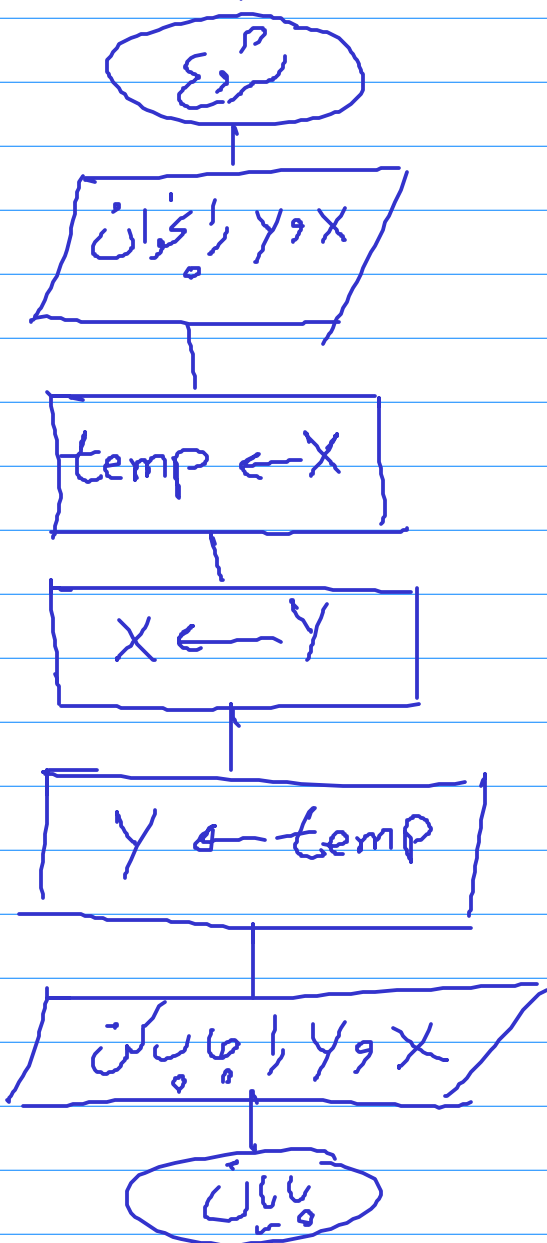 شروع
X و Y را بخوان
temp ← X
X ← Y
Y ← temp
X و Y را چاپ کن
پایان